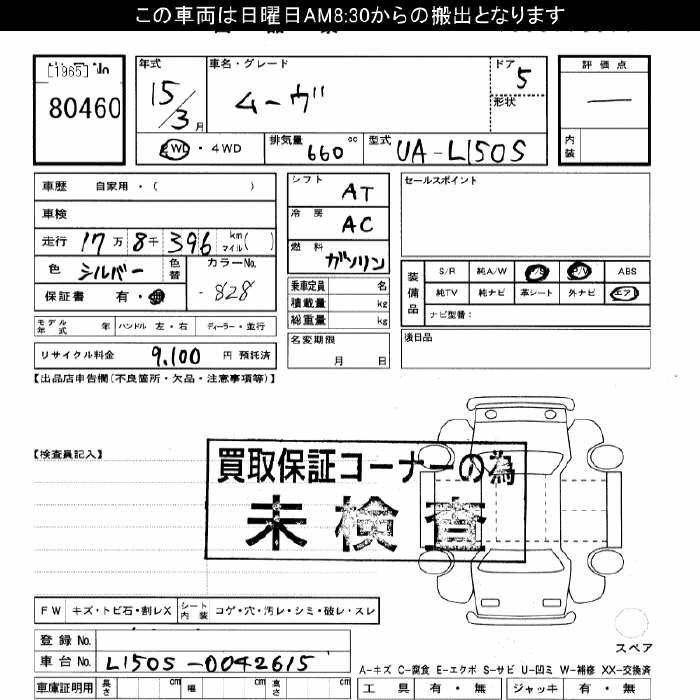 この車両は日曜日AM8:30からの搬出となります
[1965]
80460
年式
15/3月
車名・グレード
ムーヴ
ドア
5
形状
評価点
内装
2WD・4WD
排気量
660 cc
型式
UA-L150S
車歴 自家用・( )
車検
走行 17万8千396 km マイル( )
色 シルバー 色替
カラーNo.
-828
保証書 有・
シフト AT
冷房 AC
燃料 ガソリン
乗車定員 名
積載量 kg
総重量 kg
名変期限 月 日
セールスポイント
装備品
S/R 純A/W P/S P/W ABS
純TV 純ナビ 革シート 外ナビ エア
ナビ型番:
後日品
モデル年式 年 ハンドル 左・右 ディーラー・並行
リサイクル料金 9,100 円 預託済
【出品店申告欄(不良箇所・欠品・注意事項等)】
【検査員記入】
買取保証コーナーの為
未検査
FW キズ・トビ石・割レX シート内装 コゲ・穴・汚レ・シミ・破レ・スレ
スペア
登録No.
車台No. L150S-0042615
A-キズ C-腐食 E-エクボ S-サビ U-凹ミ W-補修 XX-交換済
車庫証明用 長さ cm 幅 cm 高さ cm
工具 有・無 ジャッキ 有・無